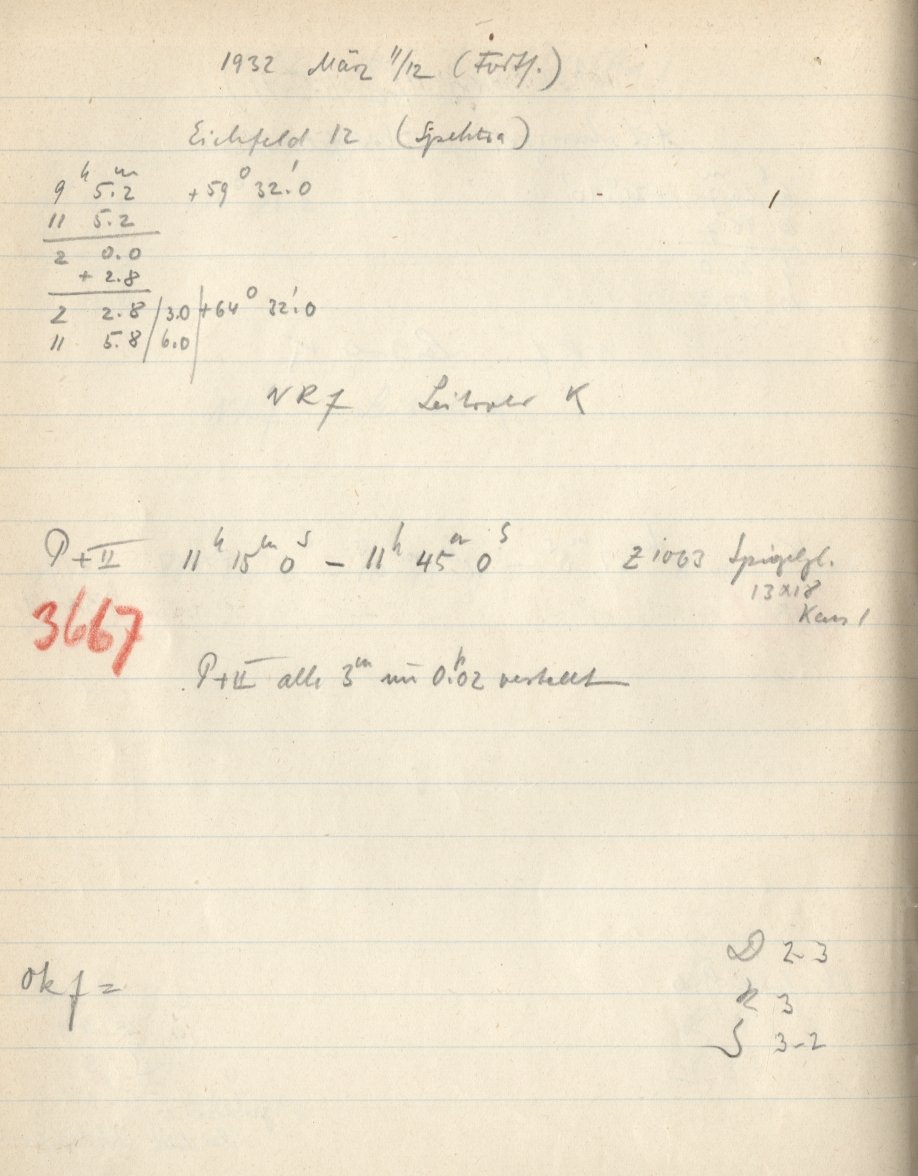 1932 März 11/12 (Forts.)
Eichfeld 12 (Spektra)
9 h 5.2 m +59° 32.'0
11 5.2
2 0.0
+ 2.8
2 2.8/3.0 +64° 32.'0
11 5.8/6.0
NRf K
P+II 11h 15m 0s – 11h 45m 0s Z 1063 Spiegelgl.
13x18
3667
P+II alle 3m um 0.02 verstellt
Okf =
D 2-3
R 3
S 3-2